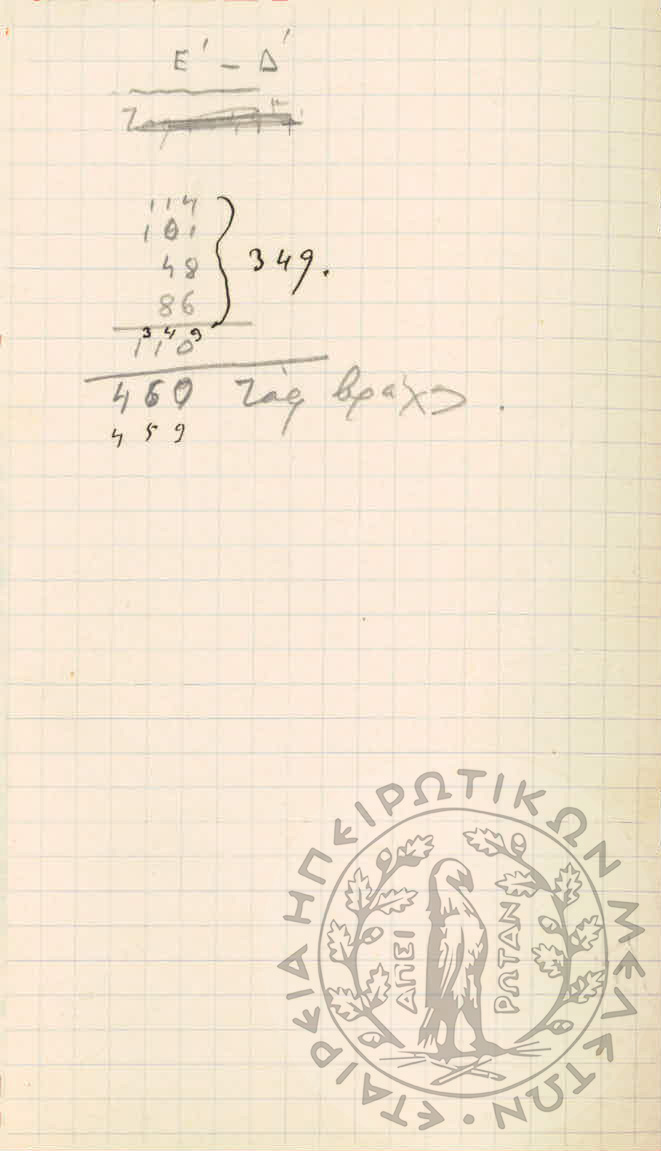 Ε' - Δ'
114
101
48
86
349.
349
110
460
459
ΕΤΑΙΡΕΙΑ ΗΠΕΙΡΩΤΙΚΩΝ ΜΕΛΕΤΩΝ
ΑΠΕΙ ΡΩΤΑΝ